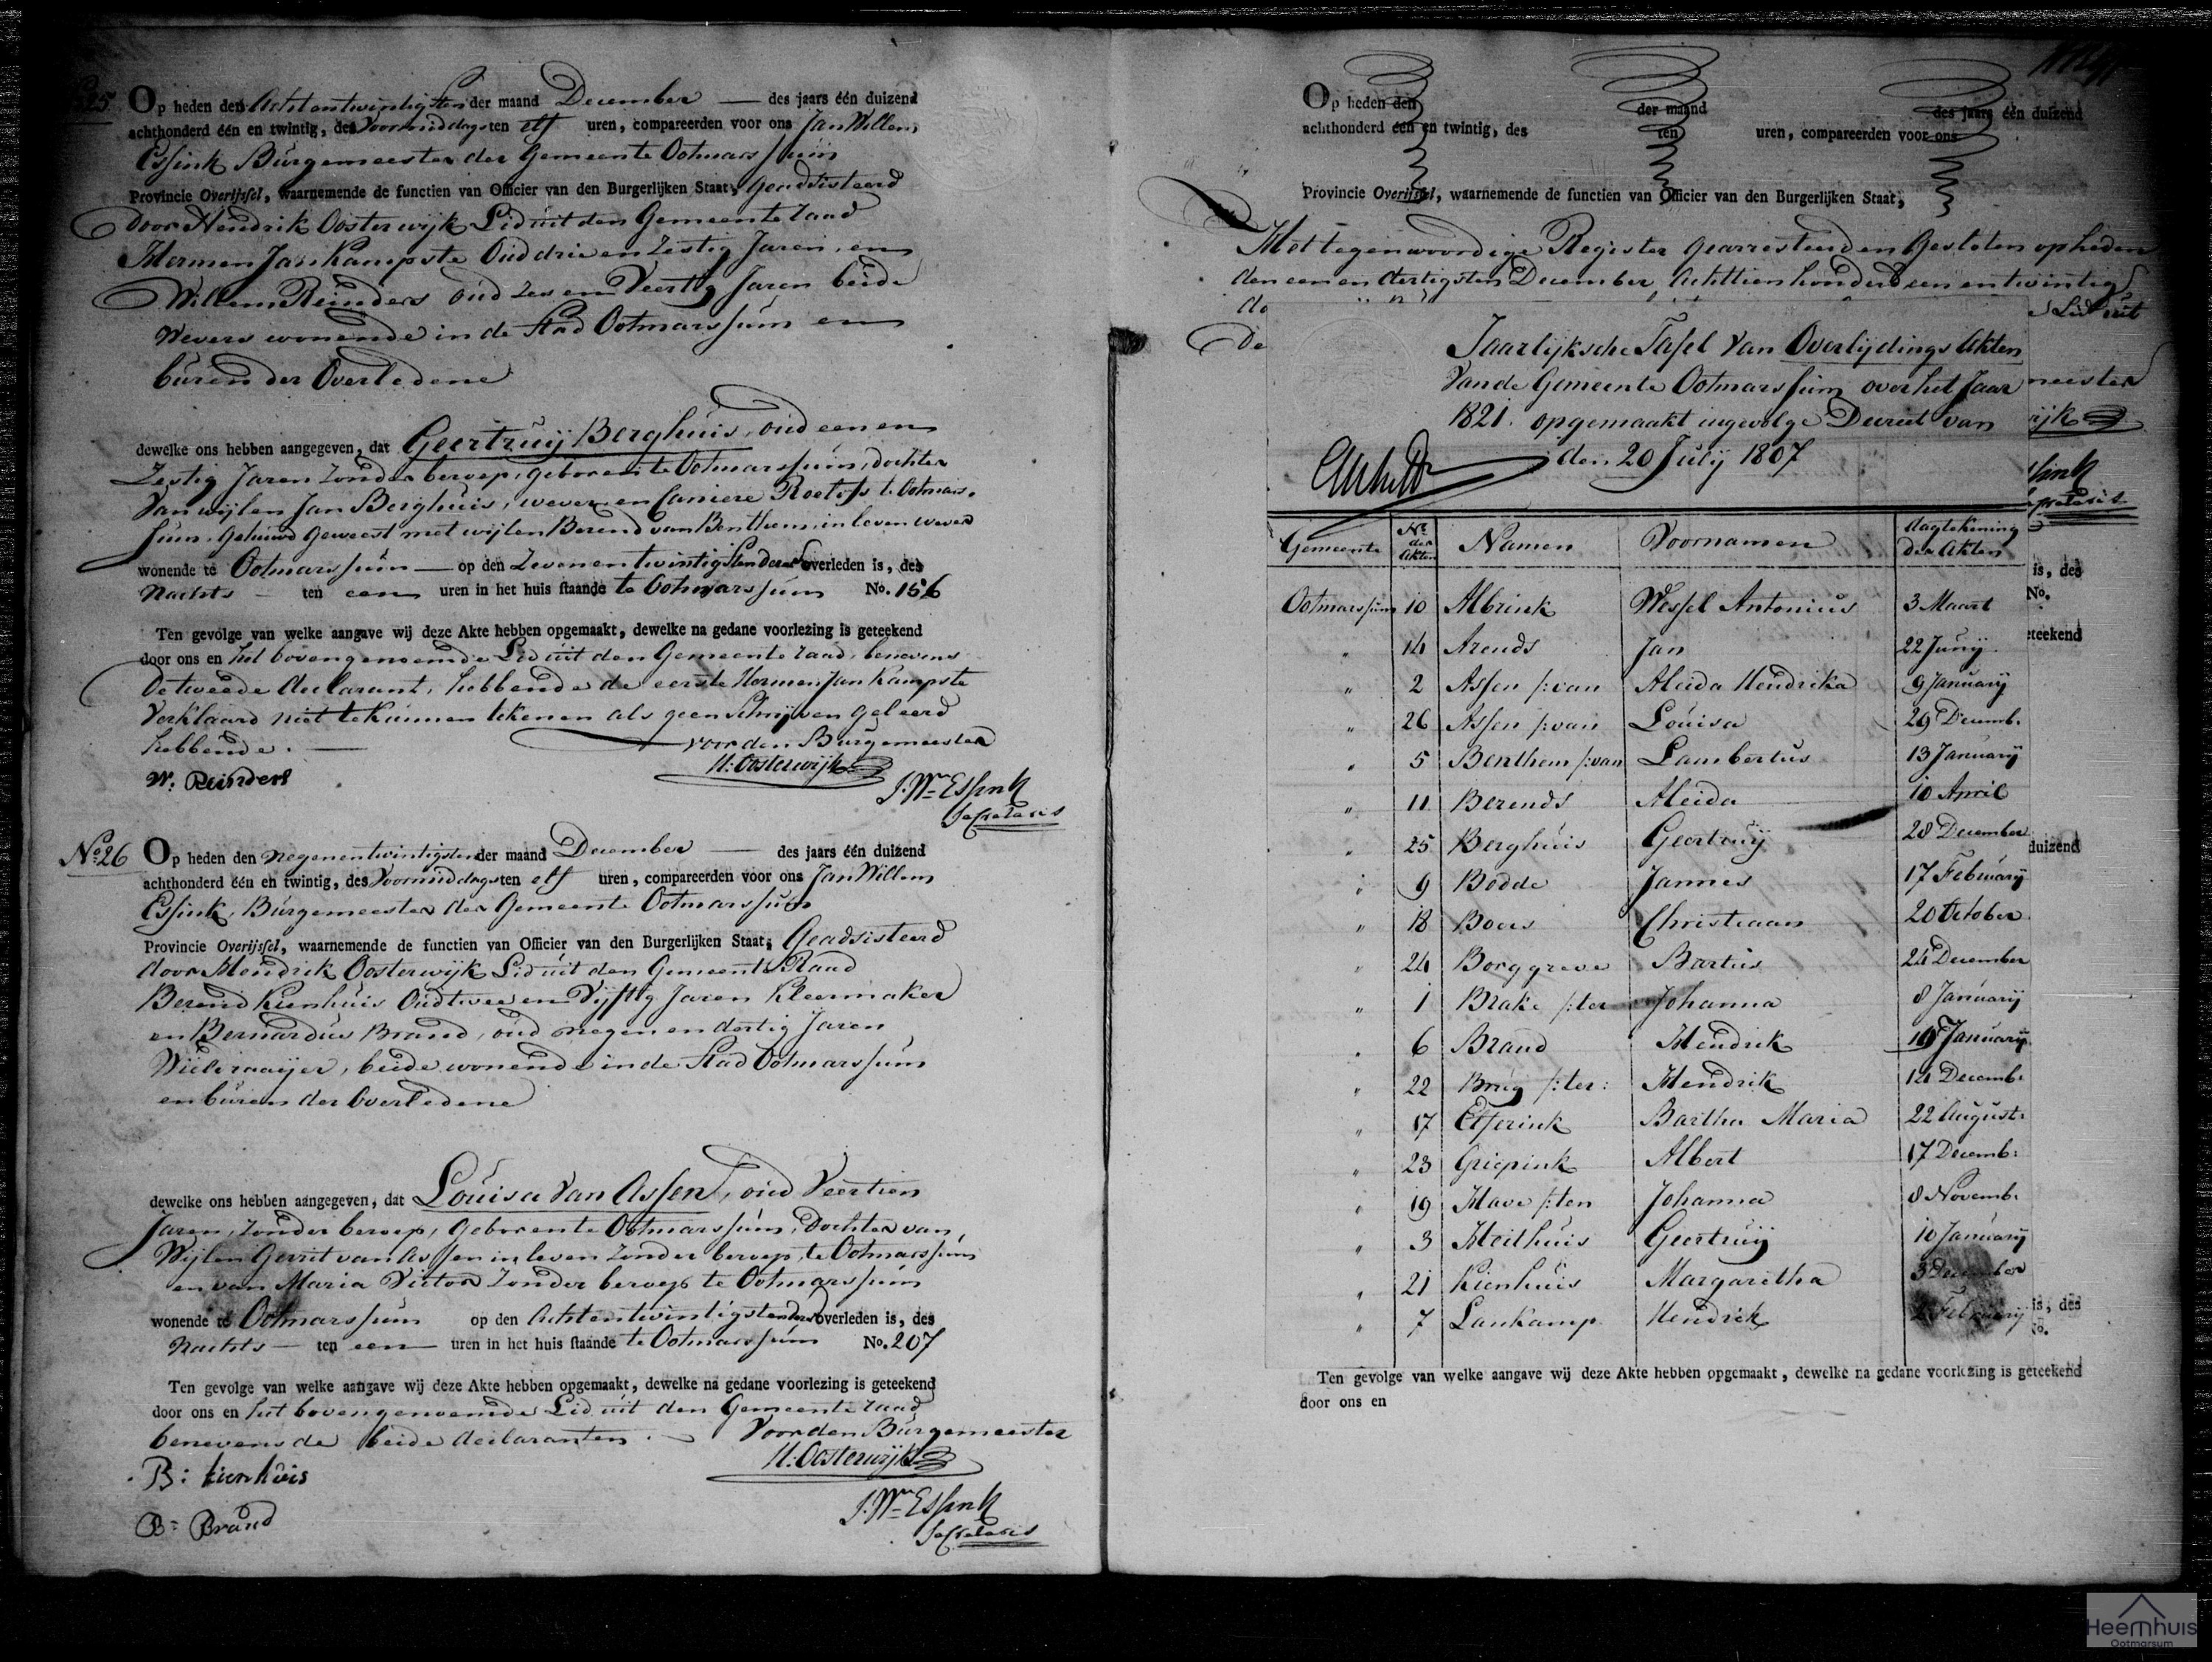 25
Op heden den Achtentwintigsten der maand December — des jaars één duizend
achthonderd één en twintig, des Voormiddags ten elf uren, compareerden voor ons Jan Willem
Essink Burgemeester der Gemeente Ootmarssum
Provincie Overijssel, waarnemende de functien van Officier van den Burgerlijken Staat, Geadsisteerd
door Hendrik Oosterwijk Lid uit den Gemeente raad
Hermen Jan Kampste Oud drie en Zestig Jaren, en
Willem Reinders oud zes en Veertig Jaren beide
Wevers wonende in de Stad Ootmarssum en
buren der Overledene
dewelke ons hebben aangegeven, dat Geertruij Berghuis, oud een en
Zestig Jaren zonder beroep, geboren te Ootmarssum, dochter
Van wijlen Jan Berghuis, wever en Caniere Roelofs te Ootmars-
sum, gehuwd geweest met wijlen Berend van Benthem, in leven wever
wonende te Ootmarssum — op den Zevenentwintigsten dezer overleden is, des
Nachts — ten een uren in het huis staande te Ootmarssum No. 156
Ten gevolge van welke aangave wij deze Akte hebben opgemaakt, dewelke na gedane voorlezing is geteekend
door ons en het bovengenoemde Lid uit den Gemeente raad, benevens
de tweede declarant, hebbende de eerste Hermen Jan Kampste
Verklaard niet te kunnen tekenen als geen Schrijven geleerd
hebbende. —
voor den Burgemeester
H: Oosterwijk
W: Reinders
J. Wm Essink
Secretaris
No. 26
Op heden den Negenentwintigsten der maand December — des jaars één duizend
achthonderd één en twintig, des Voormiddags ten elf uren, compareerden voor ons Jan Willem
Essink, Burgemeester der Gemeente Ootmarssum
Provincie Overijssel, waarnemende de functien van Officier van den Burgerlijken Staat, Geadsisteerd
door Hendrik Oosterwijk Lid uit den Gemeente Raad
Berend Kienhuis Oud twee en Vijftig Jaren Kleermaker
en Bernardus Brand, oud negen en dertig Jaren
Wieleraaijer, beide wonende in de Stad Ootmarssum
en buren der Overledene
dewelke ons hebben aangegeven, dat Louisa Van Assen, oud Veertien
Jaren, zonder beroep, geboren te Ootmarssum, Dochter van
Wijlen Gerrit van Assen in leven zonder beroep, te Ootmarssum
en van Maria Victor zonder beroep te Ootmarssum
wonende te Ootmarssum op den Achtentwintigsten dezer overleden is, des
Nachts — ten een — uren in het huis staande te Ootmarssum No. 207
Ten gevolge van welke aangave wij deze Akte hebben opgemaakt, dewelke na gedane voorlezing is geteekend
door ons en het bovengenoemde Lid uit den Gemeente raad
benevens de beide declaranten. — Voor den Burgemeester
H: Oosterwijk
B: Kienhuis
J. Wm Essink
B: Brand
Secretaris
Op heden den der maand des jaars één duizend
achthonderd één en twintig, des ten uren, compareerden voor ons
Provincie Overijssel, waarnemende de functien van Officier van den Burgerlijken Staat,
Het tegenwoordige Register gearresteerd en Gesloten op heden
den een en dertigsten December Achttien honderd een en twintig
do Lid uit
De
Jaarlijksche Tafel Van Overlijdings Akten
Van de Gemeente Ootmarssum over het Jaar
1821. opgemaakt ingevolge Decreet van
den 20 July 1807
Gemeente No. der Akten Namen Voornamen dagtekening der Akten
Ootmarssum 10 Albrink Wessel Antonius 3 Maart
" 14 Arends Jan 22 Junij
" 2 Assen /: van Aleida Hendrika 9 Januarij
" 26 Assen /: van Louisa 29 Decemb.
" 5 Benthem /: van Lambertus 13 Januarij
" 11 Berends Aleida 10 April
" 25 Berghuis Geertruij 28 December
" 9 Bodde Jannes 17 Februarij
" 18 Boers Christiaan 20 October
" 24 Borggreve Bartus 24 December
" 1 Brake /: ter Johanna 8 Januarij
" 6 Brand Hendrik 19 Januarij
" 22 Brug /: ter: Hendrik 14 Decemb.
" 17 Elferink Bartha Maria 22 August.
" 23 Griepink Albert 17 Decemb:
" 19 Have /: ten Johanna 8 Novemb.
" 3 Heithuis Geertruij 10 Januarij
" 21 Kienhuis Margaretha 3 December
" 7 Lankamp Hendrik 2 Februarij
meester
ijk
sink
secretaris
is, des
No.
eteekend
duizend
is, des
No.
Ten gevolge van welke aangave wij deze Akte hebben opgemaakt, dewelke na gedane voorlezing is geteekend
door ons en
Heemhuis
Ootmarsum